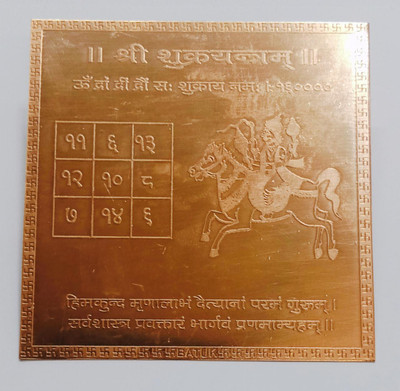 ॥ श्री शुक्रयन्त्रम् ॥
ऊँ द्रां द्रीं द्रौं सः शुक्राय नमः १६०००
११ ६ १३
१२ १० ८
७ १४ ६
हिमकुन्द मृणालाभं दैत्यानां परमं गुंरूम् ।
सर्वशास्त्र प्रवक्तारं भार्गवं प्रणमाम्यहम् ॥
BATUK